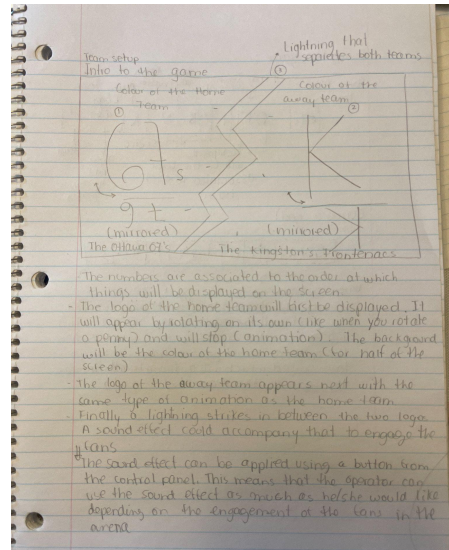 Team setup
Intro to the game
Lightning that
separates both teams
③
Colour of the Home
Team
①
Colour of the
away team
②
67s
K
(mirrored)
(mirrored)
The Ottawa 67's
The Kingston's Frontenacs
The numbers are associated to the order at which
things will be displayed on the screen
- The logo of the home team will first be displayed. It
will appear by rotating on its own (like when you rotate
a penny) and will stop (animation). The background
will be the colour of the home team (for half of the
screen)
- The logo of the away team appears next with the
same type of animation as the home team
- Finally a lightning strikes in between the two logo.
A sound effect could accompany that to engage the
fans
The sound effect can be applied using a button from
the control panel. This means that the operator can
use the sound effect as much as he/she would like
depending on the engagement of the fans in the
arena